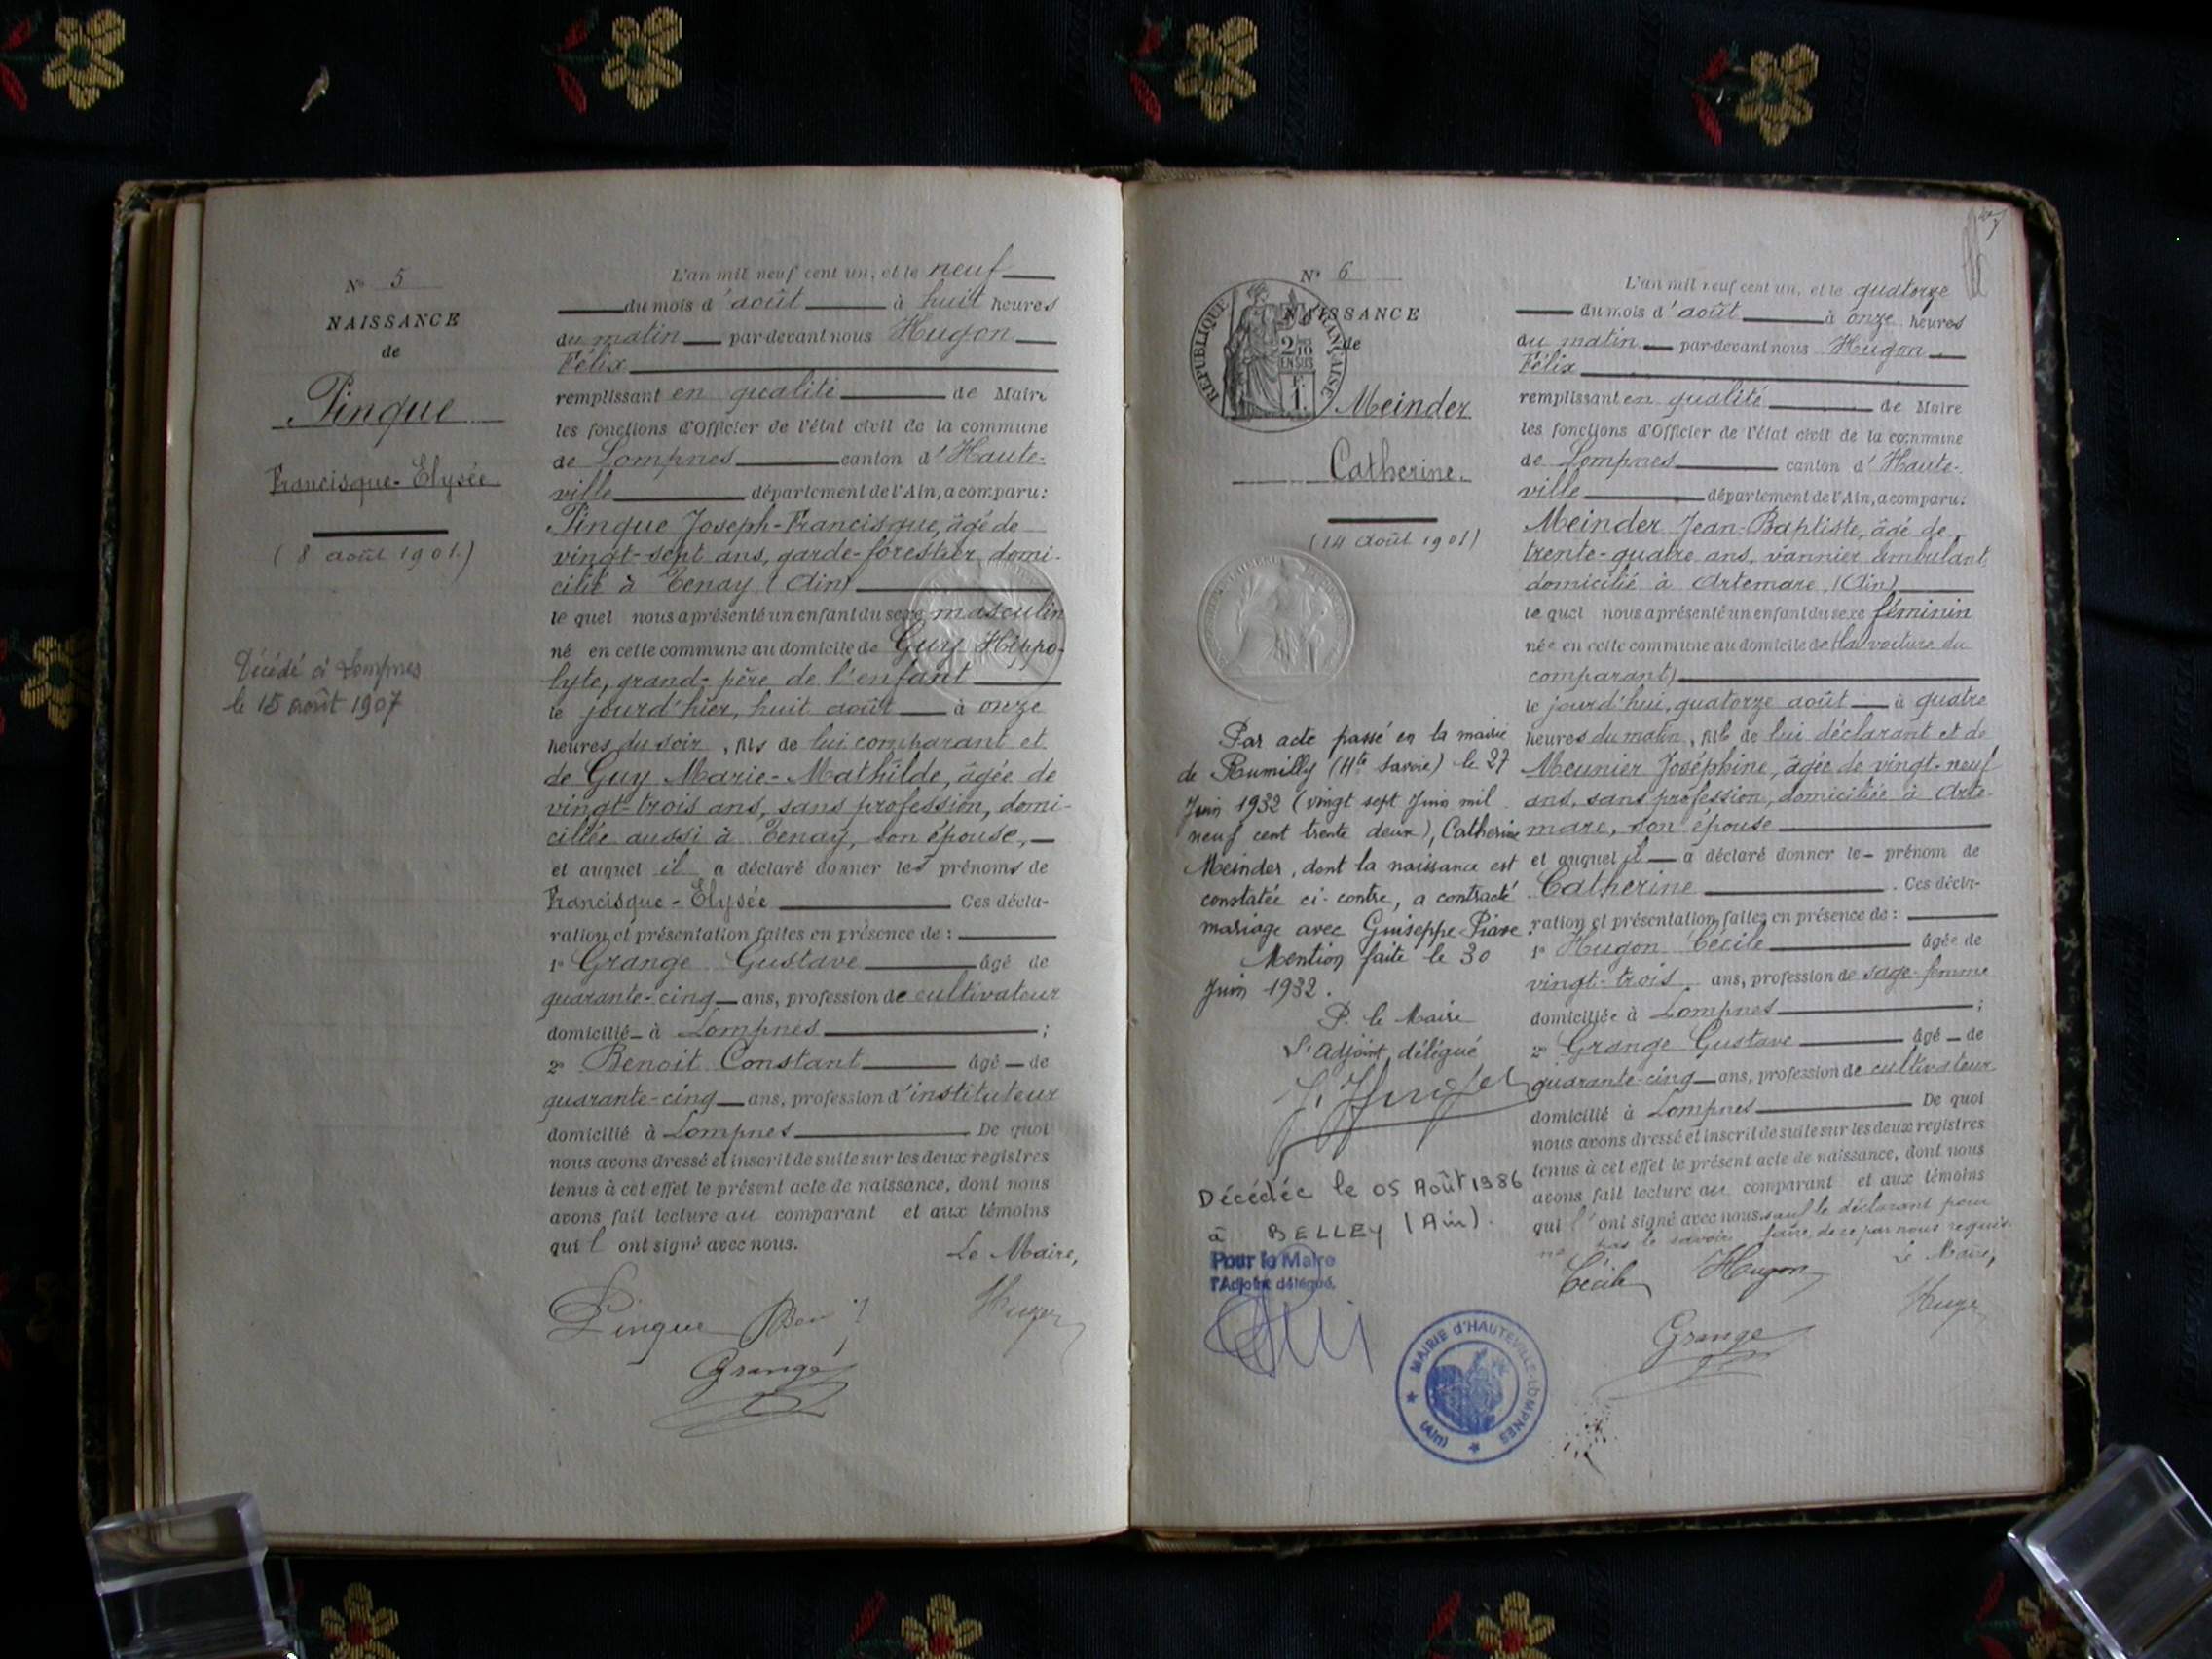 N° 5
NAISSANCE
de
Pinque
Francisque-Elysée
(8 août 1901.)
Décédé à Lompnes
le 15 août 1907
L'an mil neuf cent un, et le neuf
du mois d'août à huit heures
du matin par-devant nous Hugon
Félix
remplissant en qualité de Maire
les fonctions d'Officier de l'état civil de la commune
de Lompnes canton d'Haute-
ville département de l'Ain, a comparu:
Pinque Joseph-Francisque, âgé de
vingt-sept ans, garde-forestier, domi-
cilié à Tenay, (Ain)
le quel nous a présenté un enfant du sexe masculin
né en cette commune au domicile de Guy Hippo-
lyte, grand-père de l'enfant
le jourd'hier, huit août à onze
heures du soir, fils de lui comparant et
de Guy Marie-Mathilde, âgée de
vingt-trois ans, sans profession, domi-
ciliée aussi à Tenay, son épouse,
et auquel il a déclaré donner les prénoms de
Francisque-Elysée Ces décla-
ration et présentation faites en présence de :
1° Grange Gustave âgé de
quarante-cinq ans, profession de cultivateur
domicilié à Lompnes ;
2° Benoit Constant âgé de
quarante-cinq ans, profession d'instituteur
domicilié à Lompnes De quoi
nous avons dressé et inscrit de suite sur les deux registres
tenus à cet effet le présent acte de naissance, dont nous
avons fait lecture au comparant et aux témoins
qui l'ont signé avec nous.
Le Maire,
Pinque
Hugon
Grange
N° 6
NAISSANCE
de
RÉPUBLIQUE FRANÇAISE
2/10
EN SUS
F.
1.
Meinder
Catherine.
(14 août 1901)
Par acte passé en la mairie
de Rumilly (Hte Savoie) le 27
Juin 1932 (vingt sept Juin mil
neuf cent trente deux), Catherine
Meinder, dont la naissance est
constatée ci-contre, a contracté
mariage avec Guiseppe Piave.
Mention faite le 30
Juin 1932.
P. le Maire
L'adjoint délégué
Décédée le 05 Août 1986
à BELLEY (Ain).
Pour le Maire
l'Adjoint délégué,
MAIRIE d'HAUTEVILLE-LOMPNES
(Ain)
L'an mil neuf cent un, et le quatorze
du mois d'août à onze heures
du matin par-devant nous Hugon
Félix
remplissant en qualité de Maire
les fonctions d'Officier de l'état civil de la commune
de Lompnes canton d'Haute-
ville département de l'Ain, a comparu:
Meinder Jean-Baptiste, âgé de
trente-quatre ans, vannier ambulant,
domicilié à Artemare, (Ain)
le quel nous a présenté un enfant du sexe féminin
née en cette commune au domicile de (la voiture du
comparant)
le jourd'hui, quatorze août à quatre
heures du matin, fille de lui déclarant et de
Meunier Joséphine, âgée de vingt-neuf
ans, sans profession, domiciliée à Arte-
mare, son épouse
et auquel il a déclaré donner le prénom de
Catherine. Ces décla-
ration et présentation faites en présence de :
1° Hugon Cécile âgée de
vingt-trois ans, profession de sage-femme
domiciliée à Lompnes ;
2° Grange Gustave âgé de
quarante-cinq ans, profession de cultivateur
domicilié à Lompnes De quoi
nous avons dressé et inscrit de suite sur les deux registres
tenus à cet effet le présent acte de naissance, dont nous
avons fait lecture au comparant et aux témoins
qui l'ont signé avec nous, sauf le déclarant pour
ne pas le savoir faire, de ce par nous requis.
Le Maire,
Cécile Hugon
Grange